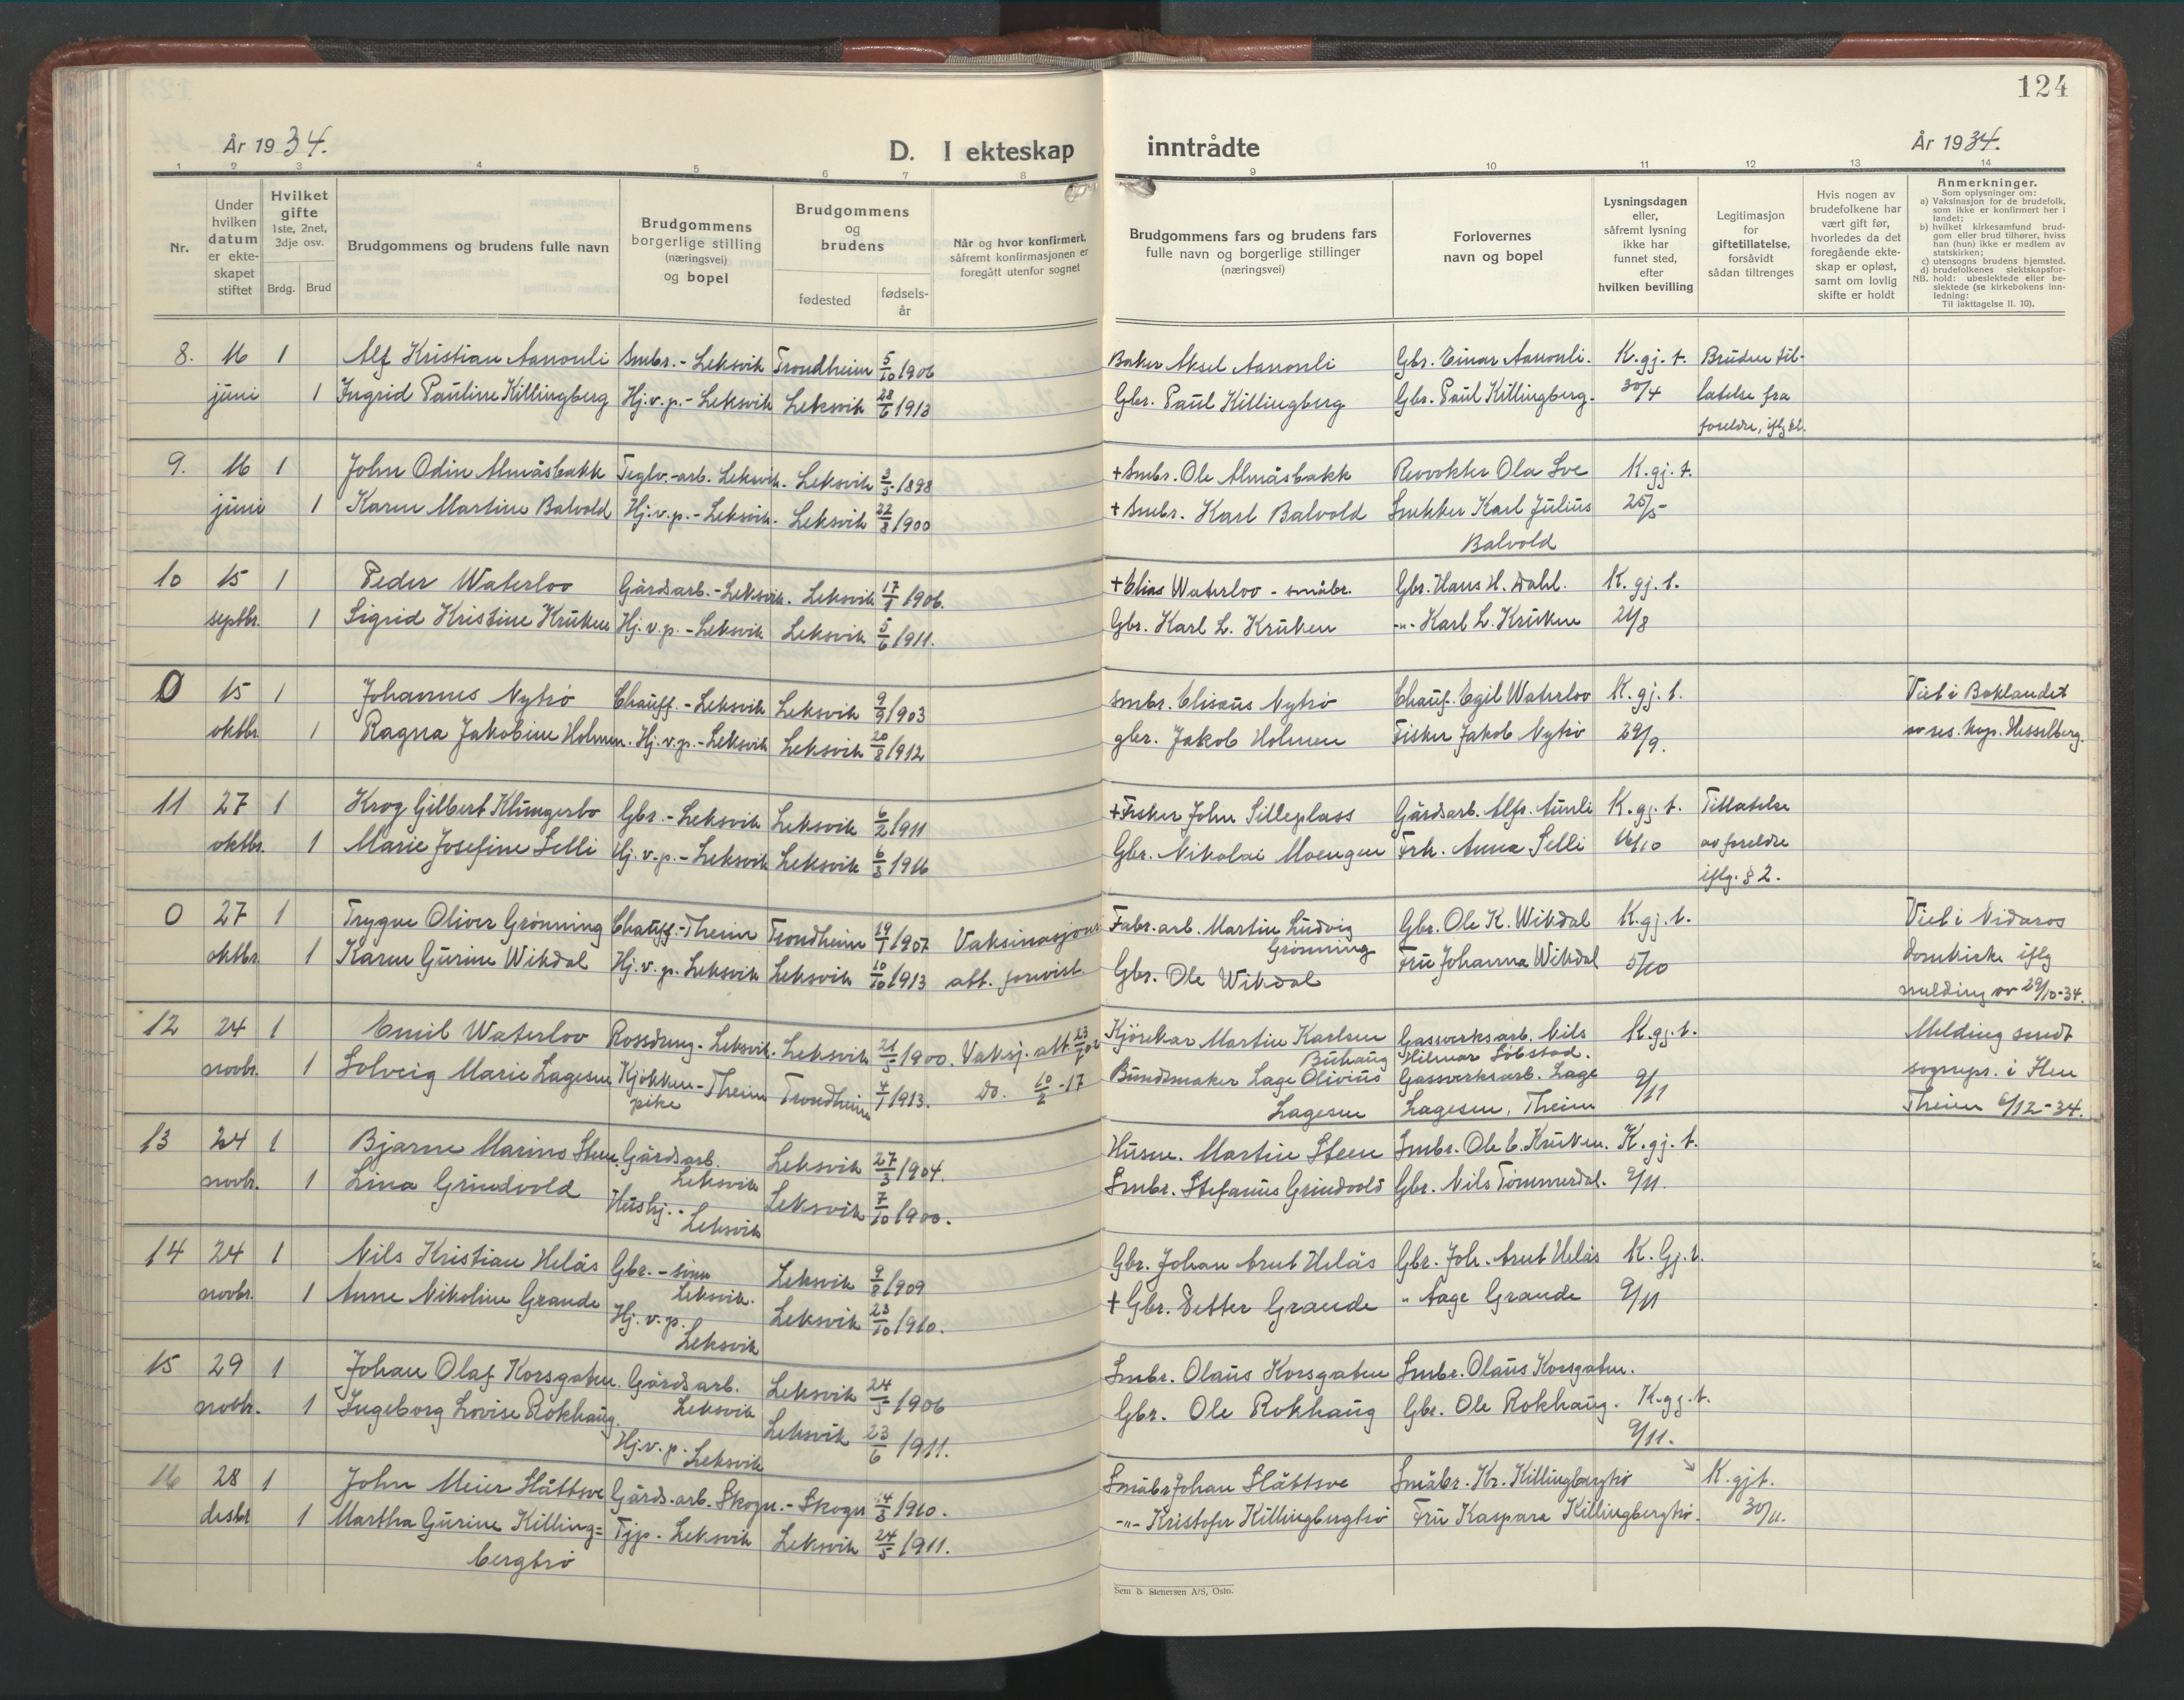 124
År 1934.
D. I ekteskap inntrådte
År 1934.
1 2 3 4 5 6 7 8 9 10 11 12 13 14
Nr.
Under hvilken datum er ekte-skapet stiftet
Hvilket gifte 1ste, 2net, 3dje osv.
Brdg. Brud
Brudgommens og brudens fulle navn
Brudgommens borgerlige stilling (næringsvei) og bopel
Brudgommens og brudens
fødested
fødsels-år
Når og hvor konfirmert, såfremt konfirmasjonen er foregått utenfor sognet
Brudgommens fars og brudens fars fulle navn og borgerlige stillinger (næringsvei)
Forlovernes navn og bopel
Lysningsdagen eller, såfremt lysning ikke har funnet sted, efter hvilken bevilling
Legitimasjon for giftetillatelse, forsåvidt sådan tiltrenges
Hvis nogen av brudefolkene har vært gift før, hvorledes da det foregående ekte-skap er opløst, samt om lovlig skifte er holdt
Anmerkninger.
Som oplysninger om:
a) Vaksinasjon for de brudefolk, som ikke er konfirmert her i landet;
b) hvilket kirkesamfund brud-gom eller brud tilhører, hviss han (hun) ikke er medlem av statskirken;
c) utensogns brudens hjemsted.
d) brudefolkenes slektskapsfor-hold: ubeslektede eller be-slektede (se kirkebokens inn-ledning:
NB. Til iakttagelse II. 10).
8. 16 1 Alf Kristian Aanonli Smbr.- Leksvik Trondheim 5/10 1906 Baker Aksel Aanonli Gbr. Einar Aanonli. K. gj. t. Bruden til-
juni 1 Ingrid Pauline Killingberg Hj.v.p.- Leksvik Leksvik 28/6 1913 Gbr. Paul Killingberg Gbr. Paul Killingberg. 30/4 latelse fra
foreldre, iflg
9. 16 1 John Odin Almåsbakk Teglv.-arb. Leksvik. Leksvik 3/5 1898 + Smbr. Ole Almåsbakk Ola Soe K. gj. t.
juni 1 Karen Martine Balvold Hj.v.p.- Leksvik. Leksvik 22/8 1900 + Smbr. Karl Balvold Snekker Karl Julius 25/5
Balvold
10 15 1 Peder Waterloo Gårdsarb.-Leksvik. Leksvik 17/1 1906. + Elias Waterloo - småbr. Gbr. Hans H. Dahl. K. gj. t.
septbr. 1 Sigrid Kristine Kruken Hj.v.p.-Leksvik Leksvik 5/6 1911. Gbr. Karl L. Kruken -"- Karl L. Kruken 24/8
0 15 1 Johannes Nytrø Chauff.-Leksvik Leksvik 9/9 1903 Smbr. Elisæus Nytrø Chauf. Egil Waterloo K. gj. t. Viet i Baklandet
oktbr. 1 Ragna Jakobine Holmen. Hj.v.p.-Leksvik Leksvik 20/8 1912 gbr. Jakob Holmen Fisker Jakob Nytrø 29/9. av res. kap. Hesselberg.
11 27 1 Krog Gilbert Klungerbo Gbr.-Leksvik Leksvik 6/2 1911 + Fisker John Silleplass Gårdsarb. Alfr. Aunli K. gj. t. Tillatelse
oktbr. 1 Marie Josefine Selli Hj.v.p.-Leksvik Leksvik 6/3 1916 Gbr. Nikolai Moengen Frk. Anna Selli 16/10 av foreldre
iflg. § 2.
0 27 1 Trygve Oliver Grønning Chauff.-Theim Trondheim 19/1 1907 Vaksinasjons Fabr.arb. Martin Ludvig Gbr. Ole K. Wikdal K. gj. t. Viet i Nidaros
Grønning
oktbr. 1 Karen Gurine Wikdal Hj.v.p. Leksvik Leksvik 10/10 1913 att. forevist. Gbr. Ole Wikdal Fru Johanna Wikdal 5/10 Domkirke iflg
melding av 29/10-34.
12 24 1 Emil Waterloo Leksvik. Leksvik 21/5 1900. Vaksj. att. Kjørekar Martin Karlsen Gassverksarb. Nils K. gj. t. Melding sendt
Buhaug Hilmar Løbstad.
novbr. 1 Solveig Marie Lagesen Kjøkken- Theim Trondheim 4/1 1913. Do. 10/2-17 Bundtmaker Lage Olivius Gassverksarb. Lage 9/11 sogneps. i
pike Lagesen Lagesen, Theim Theim 6/12-34.
13 24 1 Bjarne Marino Steen Gårdsarb. Leksvik Leksvik 27/3 1904. Husm. Martin Steen Smbr. Ole E. Kruken. K. gj. t.
novbr. 1 Lina Grindvold Hushj.. Leksvik Leksvik 7/10 1900. Smbr. Stefanus Grindvold Gbr. Nils Tømmerdal. 9/11.
14 24 1 Nils Kristian Helås Gbr.-sønn Leksvik. Leksvik 9/8 1909 Gbr. Johan Arnt Helås Gbr. Joh. Arnt Helås K. Gj. t.
novbr. 1 Anne Nikoline Grande Hj.v.p. Leksvik Leksvik 23/10 1910. + Gbr. Petter Grande " Aage Grande 9/11
15 29 1 Johan Olaf Korsgaten Gårdsarb. Leksvik Leksvik 24/5 1906 Smbr. Olaus Korsgaten Smbr. Olaus Korsgaten.
novbr. 1 Ingeborg Lovise Rokhaug. Hj.v.p. Leksvik Leksvik 23/6 1911. Gbr. Ole Rokhaug Gbr. Ole Rokhaug. K. gj. t.
9/11.
16 28 1 John Meier Slåttsve Gårds.arb. Skogn.- Skogn 14/3 1910. Småbr. Johan Slåttsve Småbr. Kr. Killingbergtrø K. gj t.
desbr 1 Martha Gurine Killing= Tjp. Leksvik Leksvik 24/5 1911. -"- Kristofer Killingbergtrø Fru Kaspara Killingbergtrø. 30/11.
bergtrø
Sem & Stenersen A/S, Oslo.